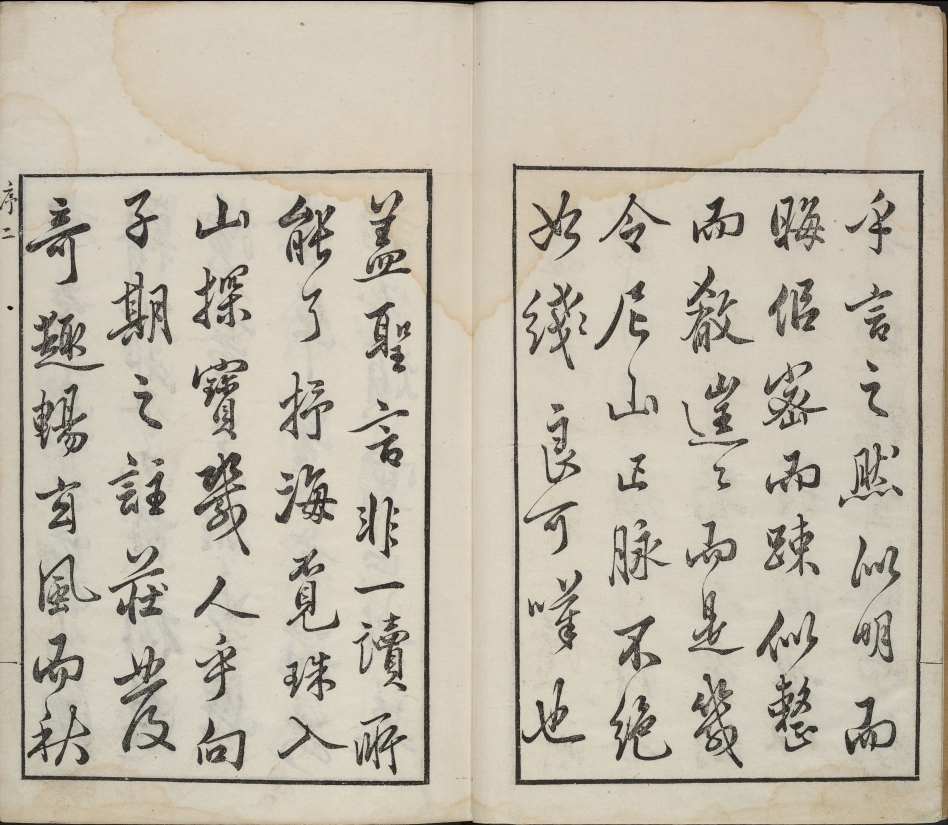 乎言之然似明而
晦佀密而踈似整
而散𨓹〻而是幾
令尼山正脉不絶
如綫良可嘆也
盖聖言非一讀所
能了抒海覓珠入
山探寶幾人乎向
子期之註莊也發
奇趣暢玄風而秋
序二